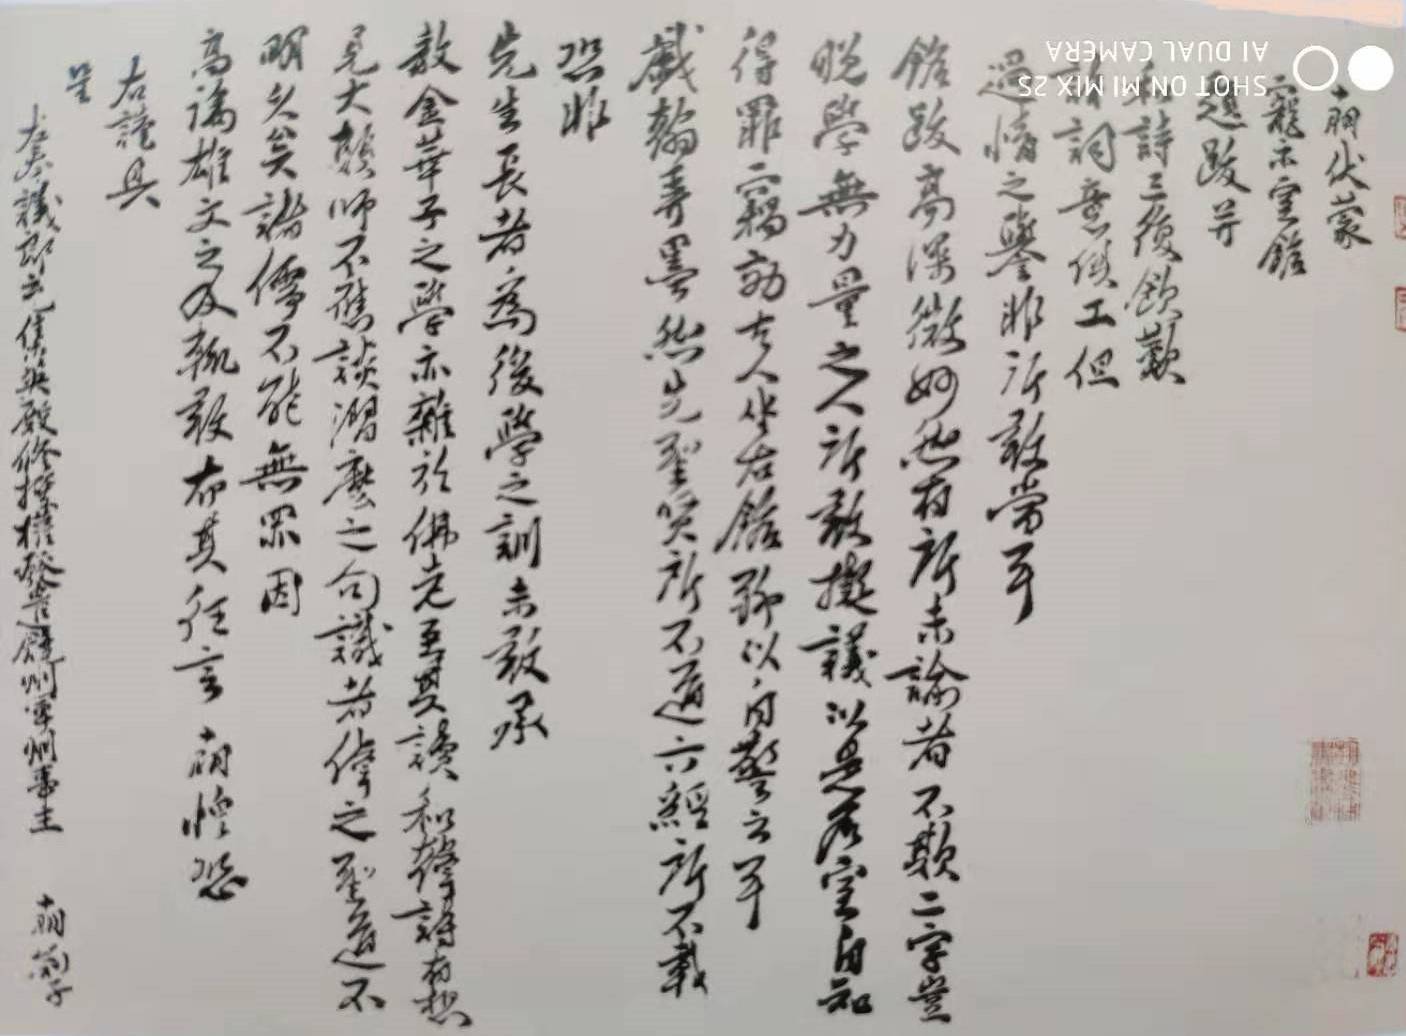 朝伏蒙
寵示室銘
題跋并
和詩三復欽歎
詞意俱工但
過情之譽非所敢當耳
銘跋高深微妙然有所未諭者不欺二字豈
晚學無力量之人所敢擬議以是名室自知
得罪竊効古人坐右銘聊以自警云耳
戲翰弄墨然先聖賢所不道六經所不載
恐非
先生長者為後學之訓未敢承
教金華子之學亦雜於佛老至其讀和韓詩有想
見大顛師不應談溜麼之句識者偉之聖道不
明久矣諸儒不能無罪因
高論雄文之及輒敢布其狂言 朝惶恐
右謹具
呈
左奉議郎充集英殿修撰權發遣饒州軍州事王 朝 劄子
SHOT ON MI MIX 2S
AI DUAL CAMERA